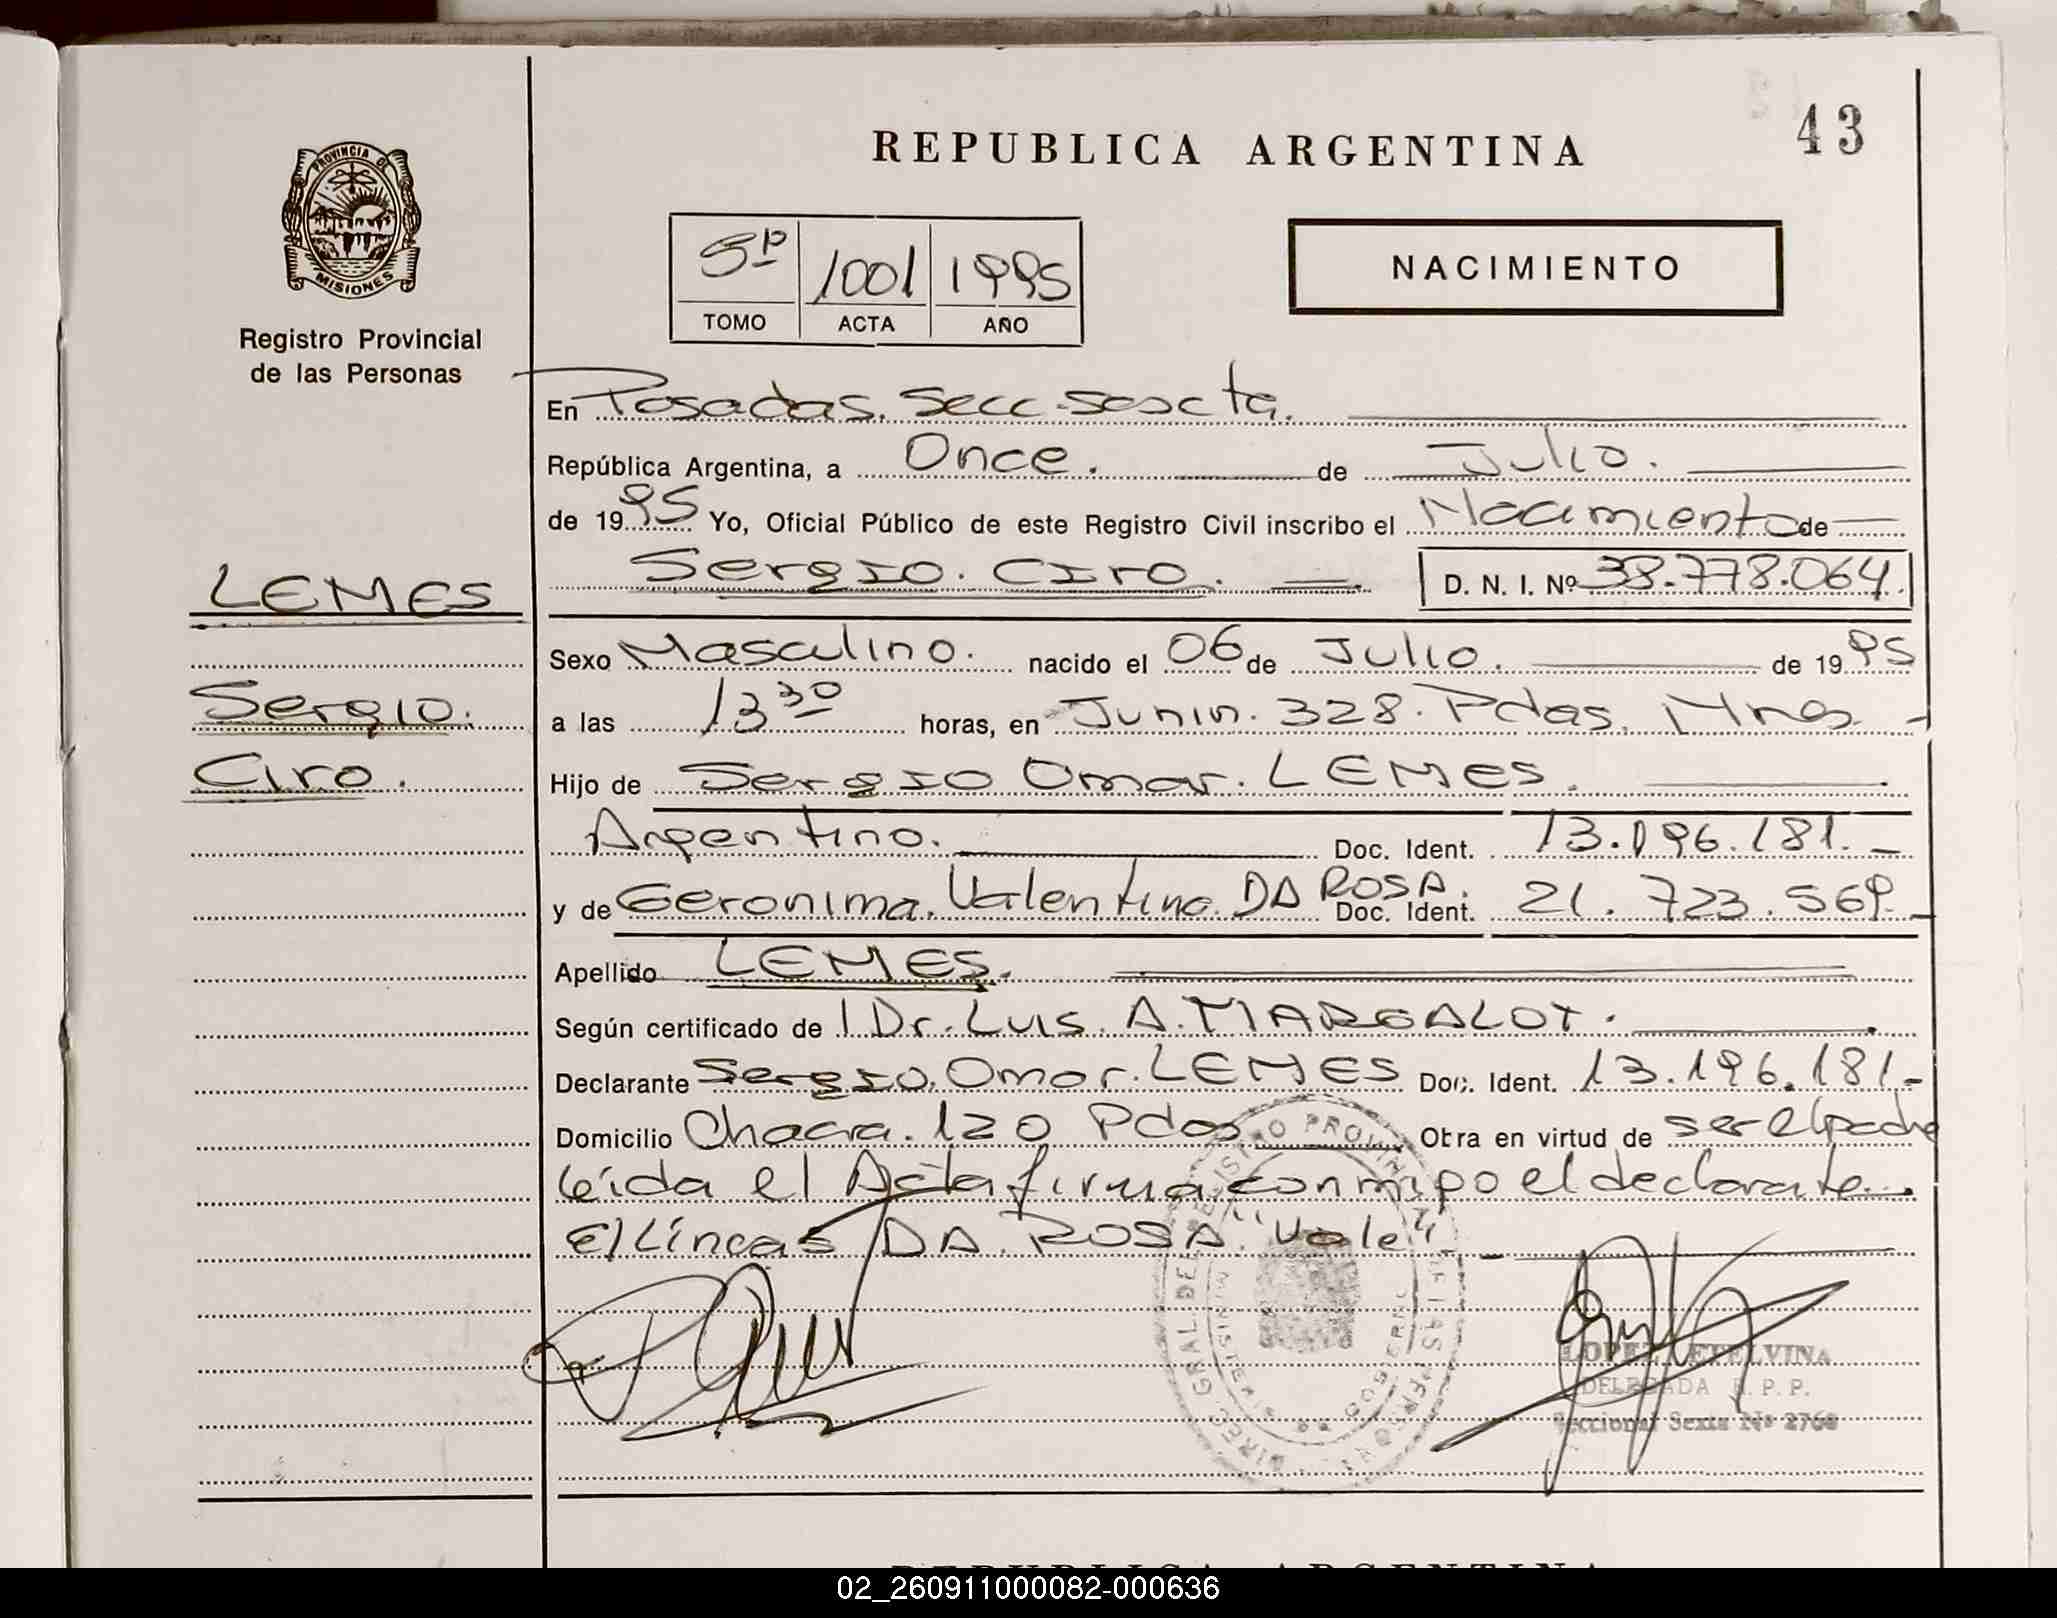 REPUBLICA ARGENTINA
43
PROVINCIA DE
MISIONES
Registro Provincial
de las Personas
5º 1001 1995
TOMO ACTA AÑO
NACIMIENTO
En Posadas. Secc. sexta.
República Argentina, a Once. de Julio.
de 1995 Yo, Oficial Público de este Registro Civil inscribo el Nacimiento de
Sergio. Ciro. D. N. I. Nº 38.778.064.
LEMES
Sergio.
Ciro.
Sexo Masculino. nacido el 06 de Julio. de 1995
a las 13 30 horas, en Junin. 328. Pdas. Mnes.
Hijo de Sergio Omar. LEMES.
Argentino. Doc. Ident. 13.196.181.-
y de Geronima. Valentina. DA ROSA. Doc. Ident. 21.723.569.-
Apellido LEMES.
Según certificado de l Dr. Luis. A. MARGALOT.
Declarante Sergio. Omar. LEMES Doc. Ident. 13.196.181.-
Domicilio Chacra. 120 Pdas Otra en virtud de ser el padre
leida el Acta firma conmigo el declarante.
E/Líneas DA. ROSA. "Vale".
LOPEZ ETELVINA
DELEGADA R. P. P.
Seccional Sexta Nº 2768
REPUBLICA ARGENTINA
02_260911000082-000636